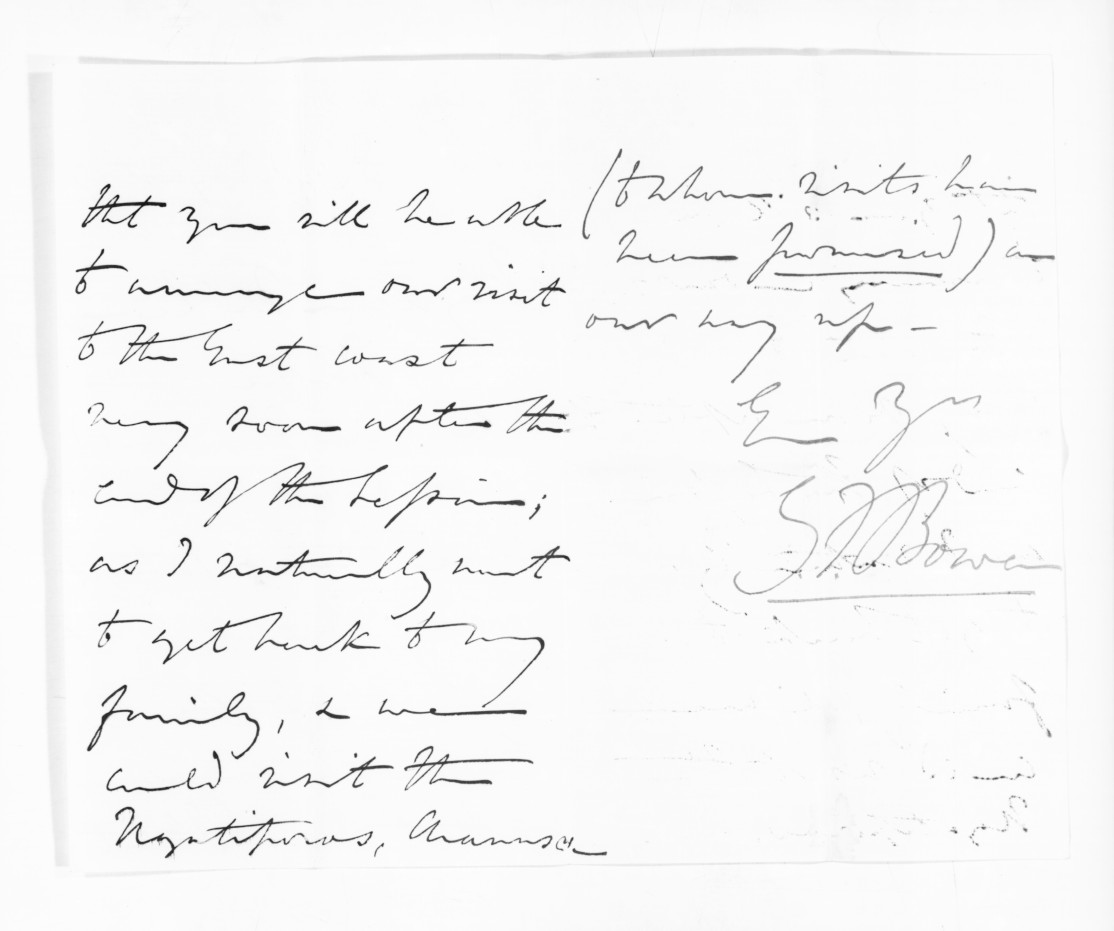 that you will be able
to arrange our visit
to the East coast
very soon after the
end of the Session;
as I naturally want
to get back to my
family, & we
could visit the
Ngatiporos,
(to whom visits have
been promised) on
our way up –
Ev Yrs
G F Bowen